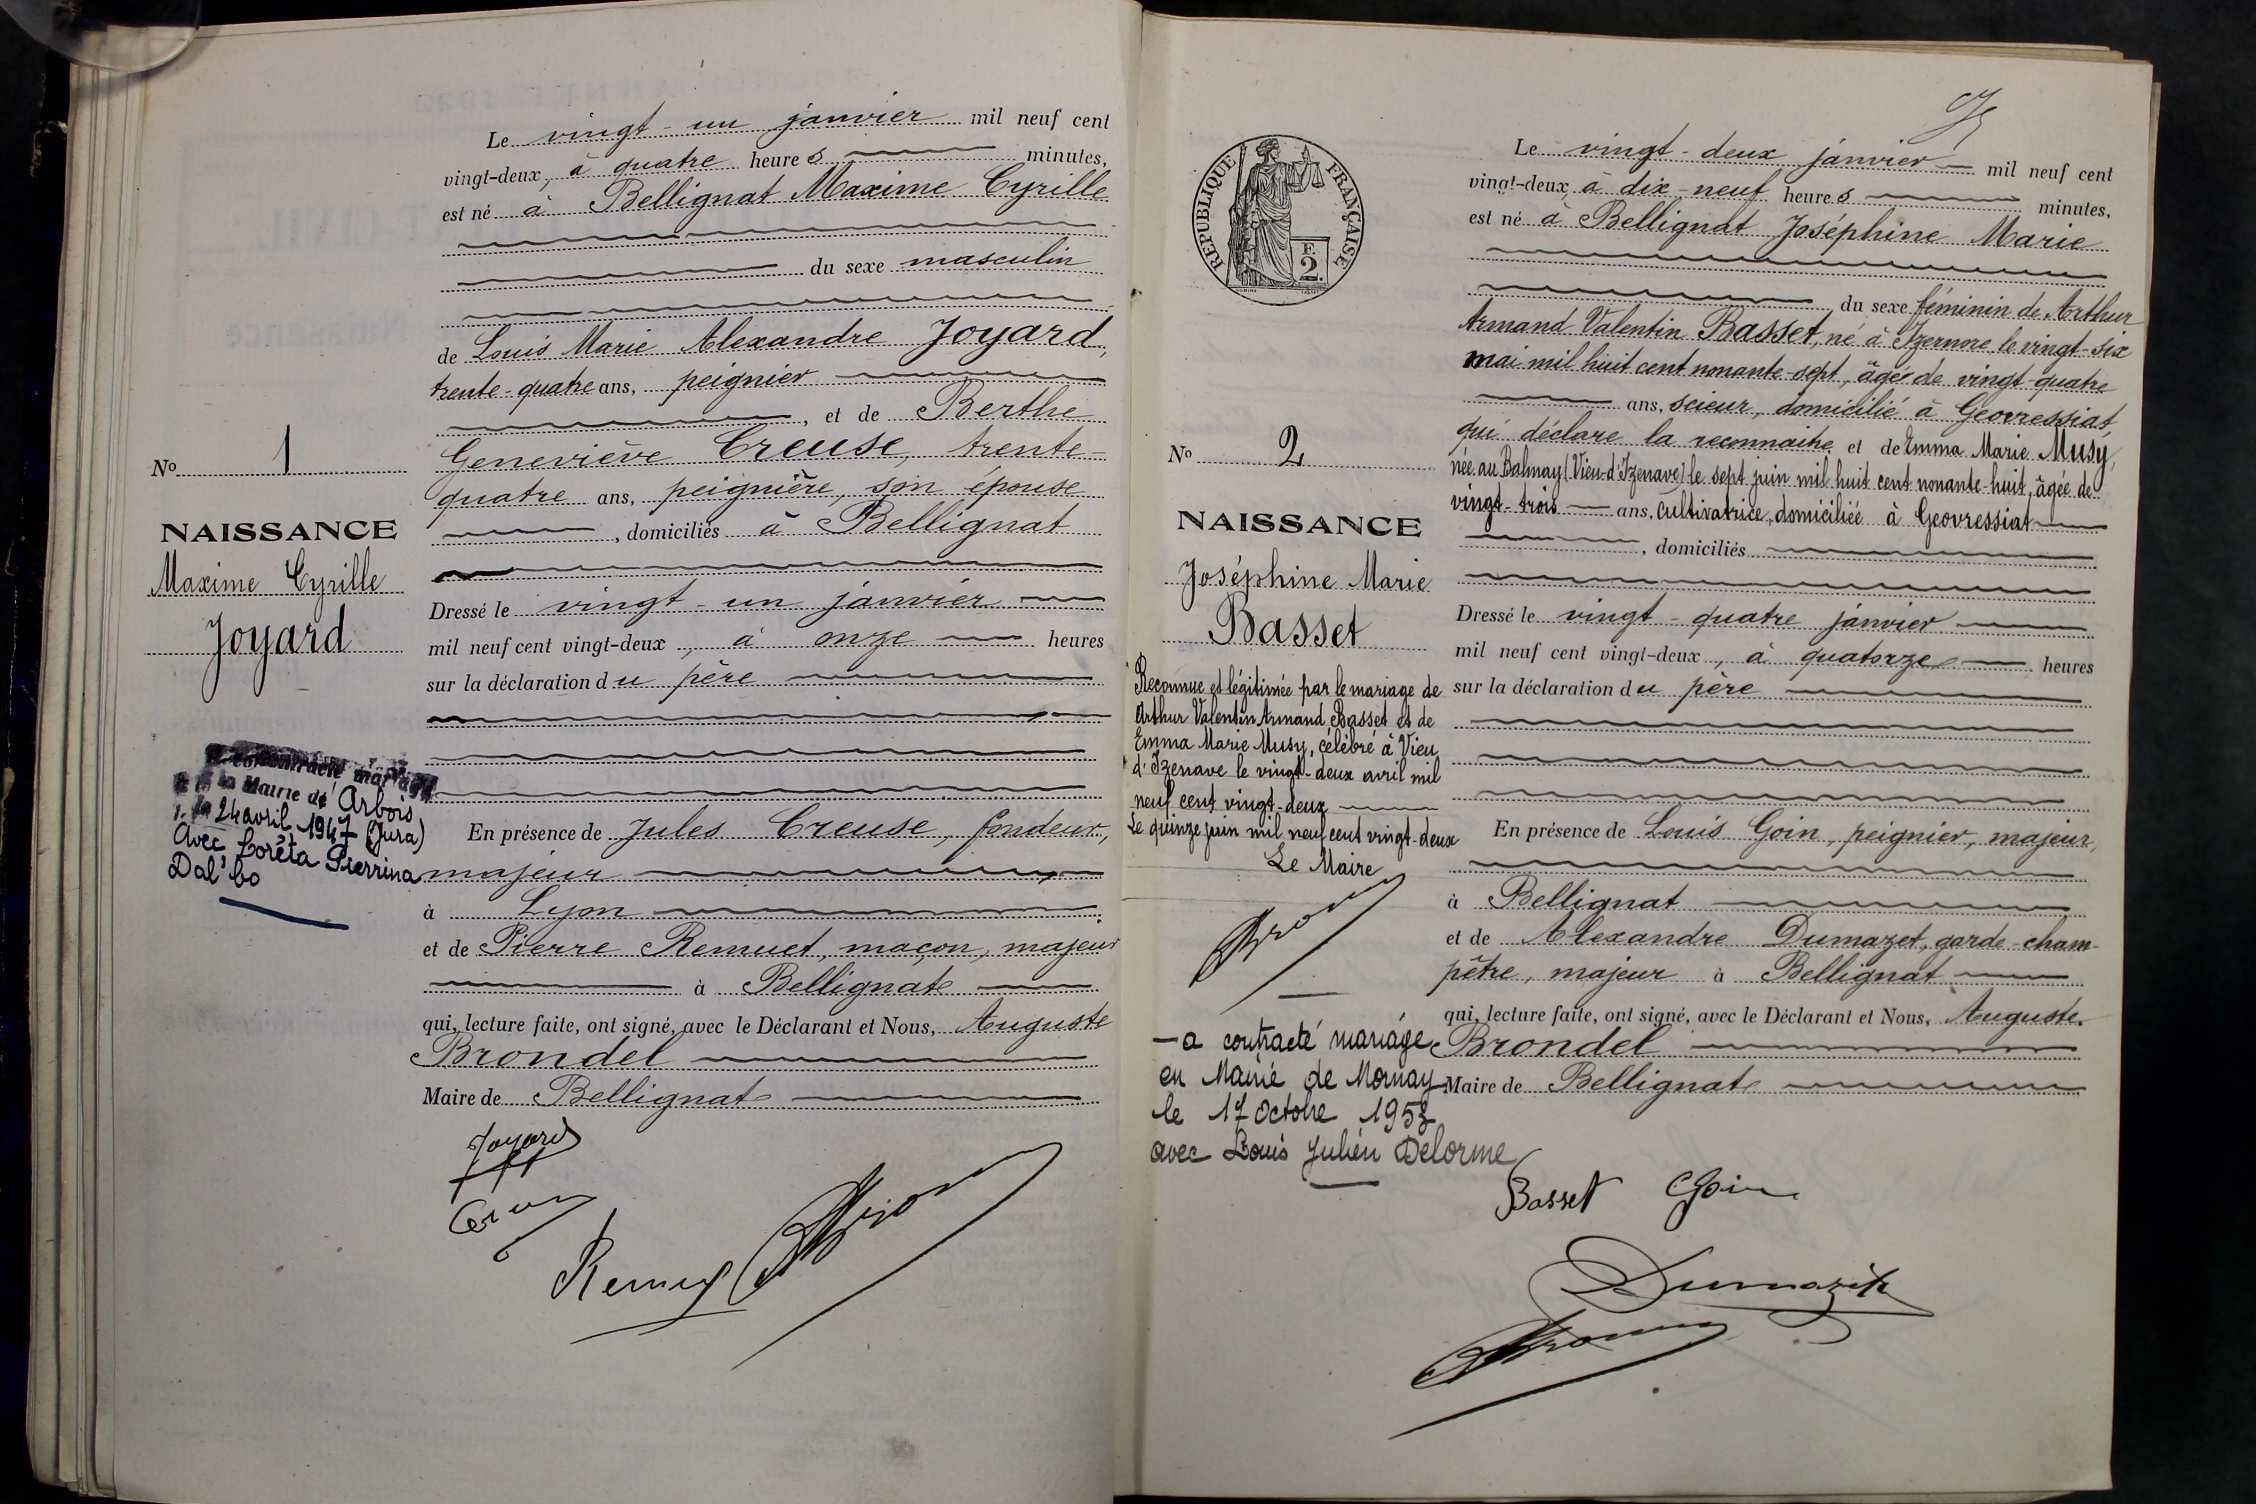 Le vingt-un janvier mil neuf cent
vingt-deux, à quatre heures minutes,
est né à Bellignat Maxime Cyrille
du sexe masculin
de Louis Marie Alexandre Joyard,
trente-quatre ans, peignier
, et de Berthe
Geneviève Creuse, trente-
quatre ans, peignière, son épouse
, domiciliés à Bellignat
Dressé le vingt-un janvier
mil neuf cent vingt-deux, à onze heures
sur la déclaration du père
En présence de Jules Creuse, fondeur,
majeur
à Lyon
et de Pierre Remuet, maçon, majeur
à Bellignat
qui, lecture faite, ont signé, avec le Déclarant et Nous, Auguste
Brondel
Maire de Bellignat
Joyard
No 1
NAISSANCE
Maxime Cyrille
Joyard
contracté mariage
la Mairie de Arbois
24 avril 1947 (Jura)
Avec Loréta Pierrina
Dal'bo
RÉPUBLIQUE FRANÇAISE
F.
2.
No 2
NAISSANCE
Joséphine Marie
Basset
Reconnue et légitimée par le mariage de
Arthur Valentin Armand Basset et de
Emma Marie Musy, célébré à Vieu
d'Izenave le vingt-deux avril mil
neuf cent vingt-deux
Le quinze juin mil neuf cent vingt-deux
Le Maire
- a contracté mariage
en Mairie de Mornay
le 17 octobre 195
avec Louis Julien Delorme
Le vingt-deux janvier mil neuf cent
vingt-deux, à dix-neuf heures minutes,
est né à Bellignat Joséphine Marie
du sexe féminin de Arthur
Armand Valentin Basset, né à Izernore le vingt-six
mai mil huit cent nonante-sept, âgé de vingt-quatre
ans, scieur, domicilié à Géovressiat,
qui déclare la reconnaître et de Emma Marie Musy,
née au Balmay (Vieu-d'Izenave) le sept juin mil huit cent nonante-huit, âgée de
vingt-trois ans, cultivatrice, domiciliée à Géovressiat
, domiciliés
Dressé le vingt-quatre janvier
mil neuf cent vingt-deux, à quatorze heures
sur la déclaration du père
En présence de Louis Goin, peignier, majeur,
à Bellignat
et de Alexandre Dumazet, garde-cham-
pêtre, majeur à Bellignat
qui, lecture faite, ont signé, avec le Déclarant et Nous, Auguste
Brondel
Maire de Bellignat
Basset Goin